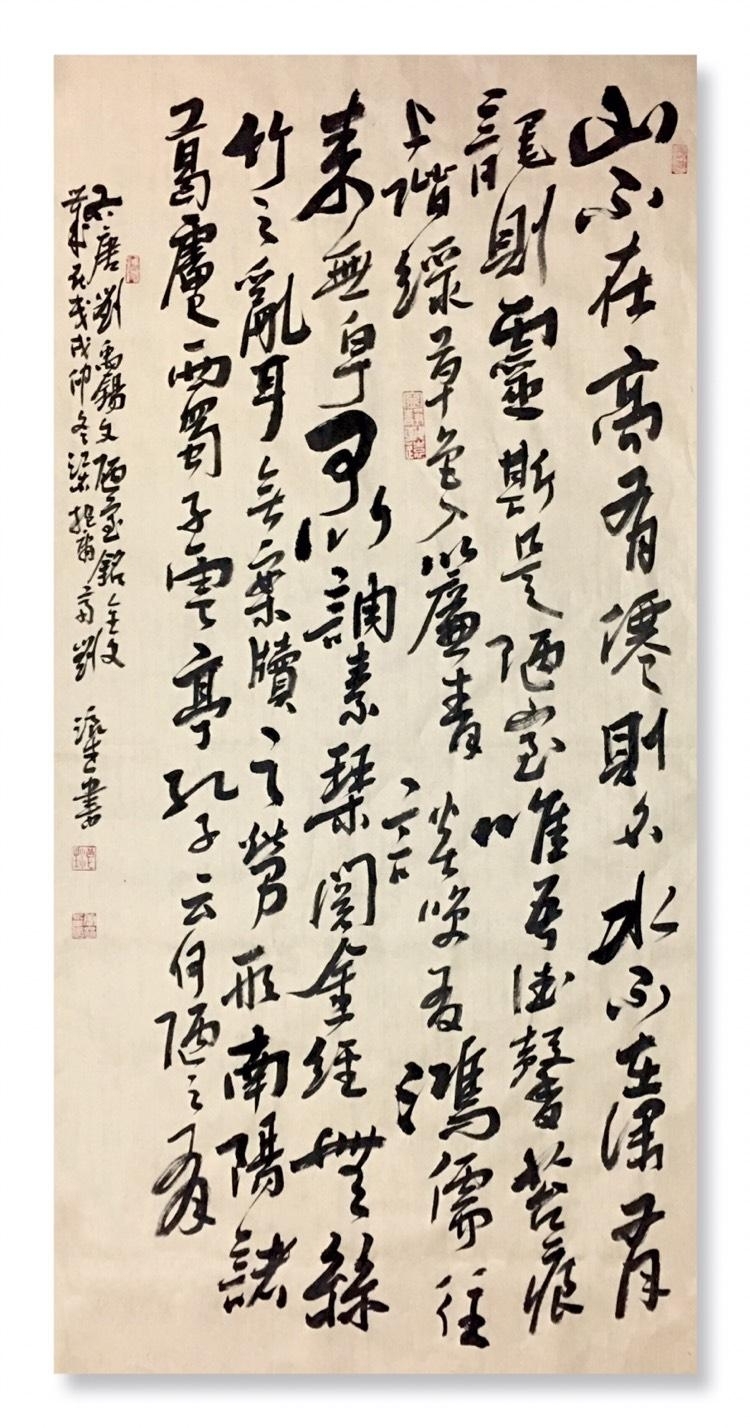 山不在高有僊則名水不在深有
龍則靈斯是陋室唯吾德馨苔痕
上階綠草色入簾青談笑有鴻儒往
來無白丁可以調素琴閱金經無絲
竹之亂耳無案牘之勞形南陽諸
葛廬西蜀子雲亭孔子云何陋之有
唐劉禹錫文陋室銘全文
歲在戊戌仲冬 劉 書